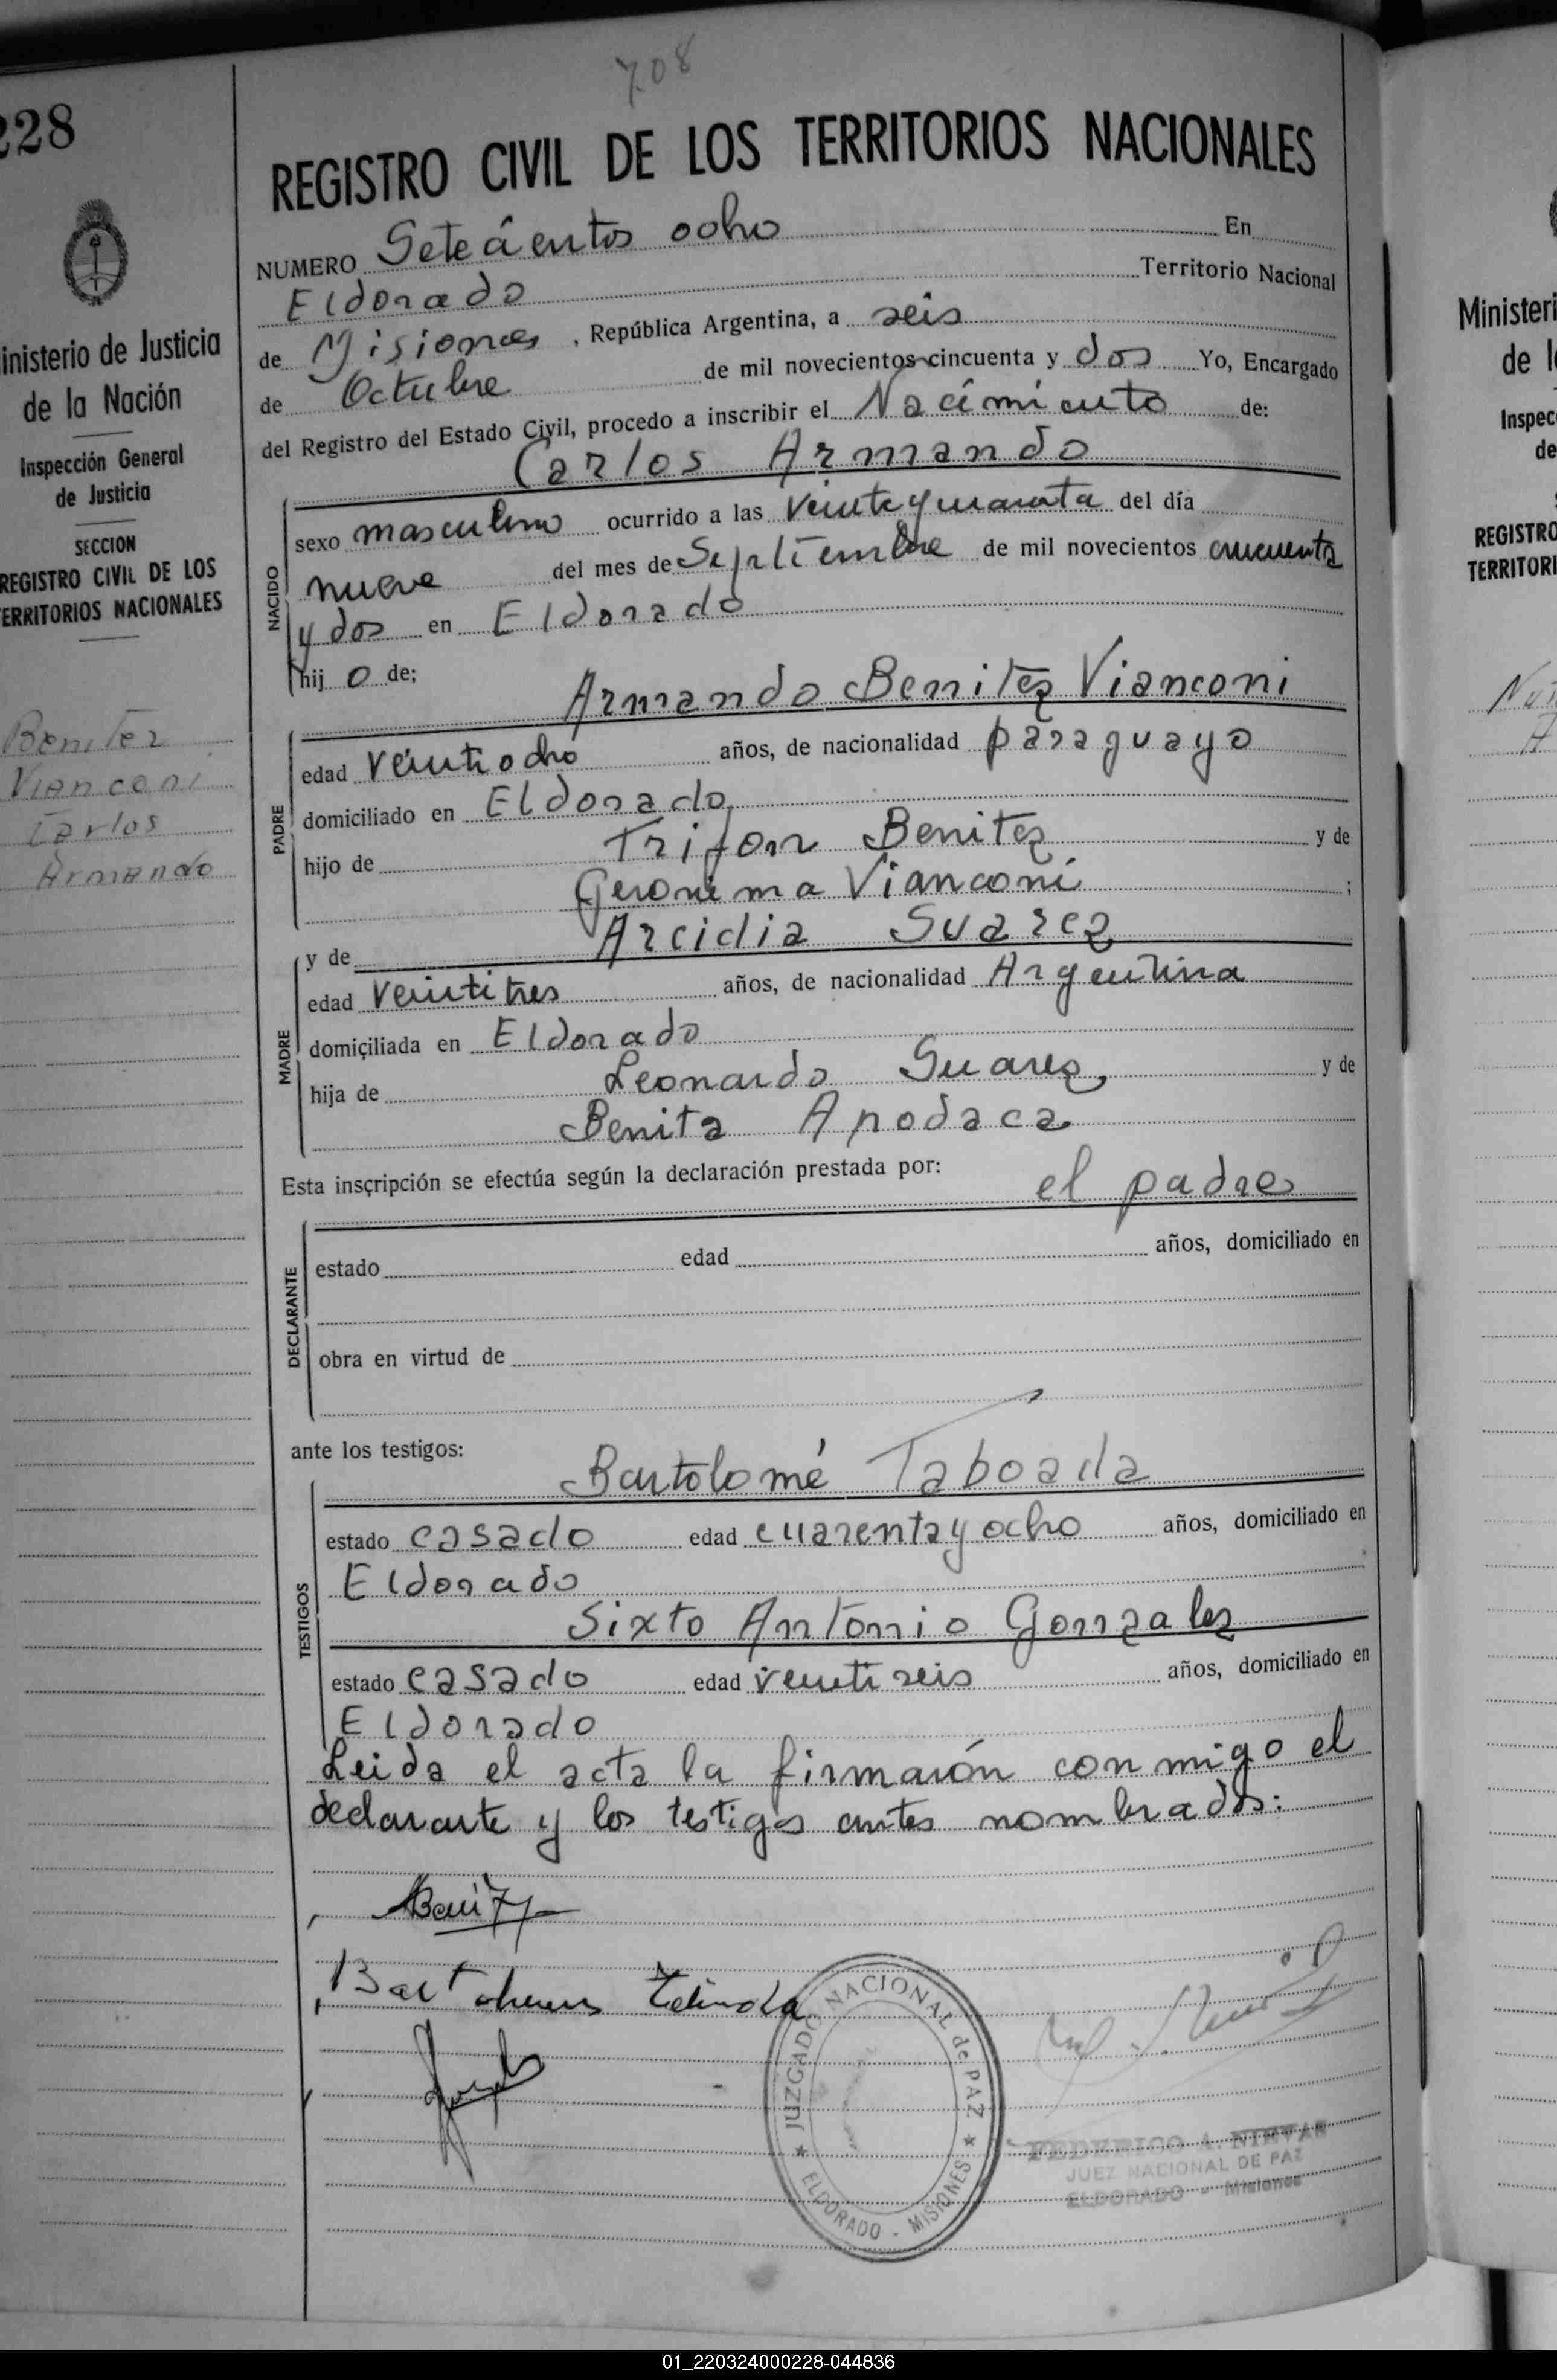 708
228
REGISTRO CIVIL DE LOS TERRITORIOS NACIONALES
NUMERO Setecientos ocho En
Eldorado Territorio Nacional
de Misiones, República Argentina, a seis
de Octubre de mil novecientos cincuenta y dos Yo, Encargado
del Registro del Estado Civil, procedo a inscribir el Nacimiento de:
Carlos Armando
NACIDO
sexo masculino ocurrido a las veinte y cuarenta del día
nueve del mes de Septiembre de mil novecientos cincuenta
y dos en Eldorado
hijo de;
Armando Benitez Vianconi
PADRE
edad veintiocho años, de nacionalidad paraguayo
domiciliado en Eldorado,
hijo de Trifon Benitez y de
Geronima Vianconi ;
MADRE
y de Arcidia Suarez
edad veintitres años, de nacionalidad Argentina
domiciliada en Eldorado
hija de Leonardo Suarez, y de
Benita Apodaca
Esta inscripción se efectúa según la declaración prestada por:
el padre
DECLARANTE
estado edad años, domiciliado en
obra en virtud de
ante los testigos:
Bartolomé Taboada
TESTIGOS
estado casado edad cuarenta y ocho años, domiciliado en
Eldorado
Sixto Antonio Gonzalez
estado casado edad veintiseis años, domiciliado en
Eldorado
Leida el acta la firmarón conmigo el
declarante y los testigos antes nombrados:
JUZGADO NACIONAL de PAZ
★ ELDORADO - MISIONES ★
FEDERICO A.
JUEZ NACIONAL DE PAZ
ELDORADO - Misiones
inisterio de Justicia
de la Nación
Inspección General
de Justicia
SECCION
REGISTRO CIVIL DE LOS
ERRITORIOS NACIONALES
Benitez
Vianconi
Carlos
Armando
Ministeri
de l
Inspec
de
REGISTRO
TERRITORI
01_220324000228-044836